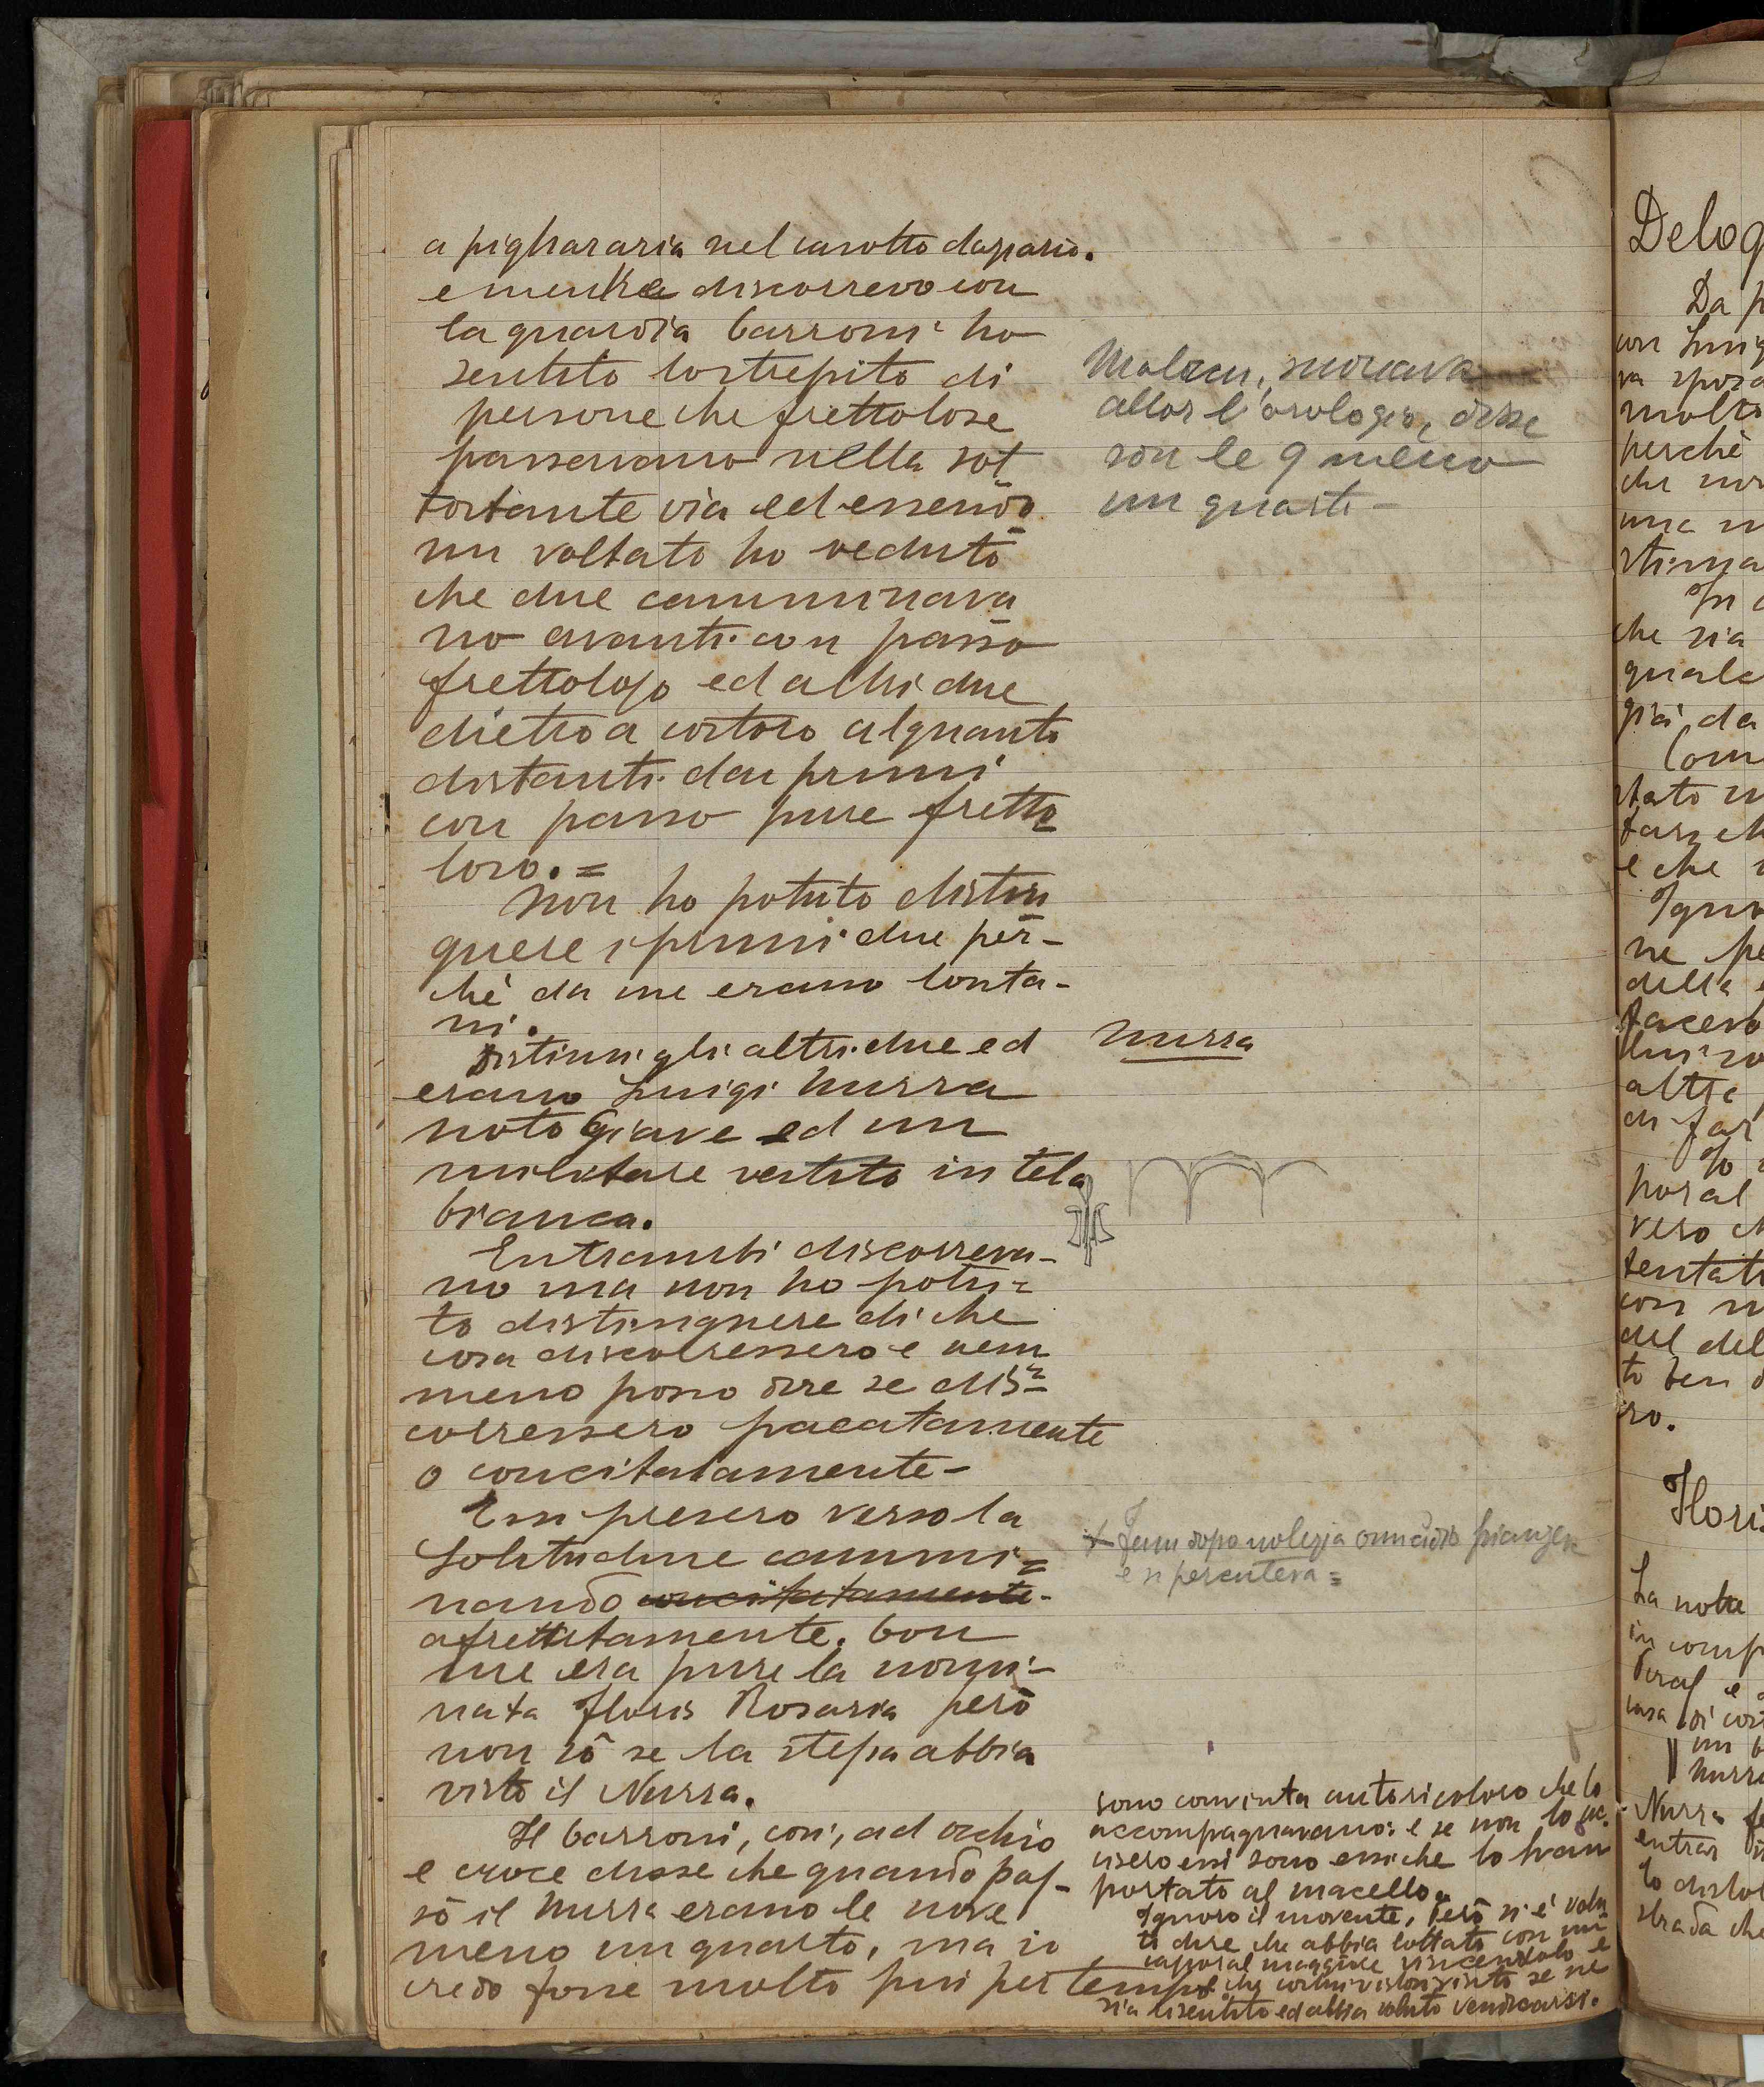 a pigliar aria nel casotto daziario.
e mentre discorrevo con
la guardia Carroni ho
sentito lo strepito di
persone che frettolose
passavano nella sot
tostante via ed essendo
mi voltato ho veduto
che due cammınava
no avanti con passo
frettoloso ed altri due
dietro a costoro alquanto
distanti dai primi
con passo pure fretto
loso. =
Non ho potuto distin
guere i primi due per-
chè da me erano lonta-
ni.
Distinsi gli altri due ed
erano Luigi Nurra
noto Giave ed un
militare vestito in tela
bianca.
Entrambi discorreva-
no ma non ho potu=
to distinguere di che
cosa discorressero e nem
meno posso dire se dis=
corressero pacatamente
o concitatamente-
Essi presero verso la
Solitudine cammi=
nando concitatamente-
affrettatamente. Con
me era pure la nomi-
nata Floris Rosaria però
non sò se la stessa abbia
visto il Nurra.
Il Carroni, così, ad occhio
e croce disse che quando pas-
sò il Nurra erano le nove
meno un quarto, ma io
credo fosse molto più per tempo
suonava
allor l'orologio, disse
son le 9 meno
un quarto-
Nurra
dopo notizia omicidio piangeva
e si percuoteva =
sono convinta autori coloro che lo
accompagnavano: e se non lo uc.
cisero essi sono essi che lo han
portato al macello.
Ignoro il movente, però si è volu
to dire che abbia lottato con un
caporal maggiore vincendolo e
che costui vistosi vinto se ne
sia risentito ed abbia voluto vendicarsi.
Delog
Da p
con Luig
va sposa
molto
perchè
che non
una
stima
In
che sia
qualc
già da
Com
stato
e che
Igno
ne pe
della
facevo
altre
di far
Io
poral
vero ch
tentat
con
del del
to ben
ro.
Floris
La notte
in comp
casa di
un
Nurra
Nurra
entrar
lo
strada che